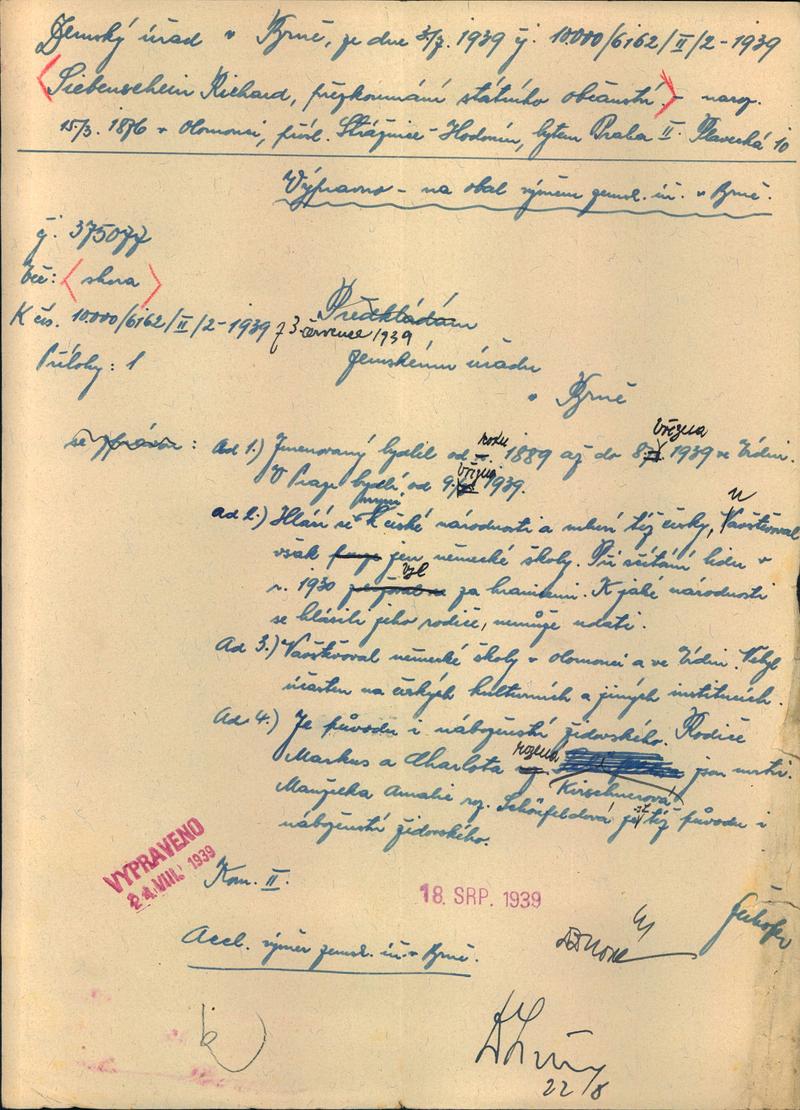 Zemský úřad v Brně, ze dne 3./7. 1939 čj. 10.000/6162/II/2-1939
Siebenschein Richard, přezkoumání státního občanství. - naroz.
15./3. 1876 v Olomouci, přísl. Strážnice - Hodonín, bytem Praha II. Plavecká 10
Výpravno - na obal výměr zemsk. úř. v Brně.
čj. 375077
Věc: shora
Předkládám
K čís. 10.000/6162/II/2-1939 z 3. července 1939
Přílohy: 1
Zemskému úřadu
v Brně
se zprávou :
Ad 1.) Jmenovaný bydlel od roku 1889 až do 8. března 1939 ve Vídni.
V Praze bydlí od 9. března 1939.
Ad 2.) Hlásí se nyní k české národnosti a mluví též česky, Navštěvoval
však jen německé školy. Při sčítání lidu v
r. 1930 byl za hranicemi. K jaké národnosti
se hlásili jeho rodiče, nemůže udati.
Ad 3.) Navštěvoval německé školy v Olomouci a ve Vídni. Nebyl
účasten na českých kulturních a jiných institucích.
Ad 4.) Je původu i náboženství židovského. Rodiče
Markus a Charlota rozená Kirschnerová jsou mrtvi.
Manželka Amalie roz. Schönfeldová je též původu i
náboženství židovského.
VYPRAVENO
24. VIII. 1939
Kom. II.
18. SRP. 1939
Accl. výměr zemsk. úř. v Brně.
22/8